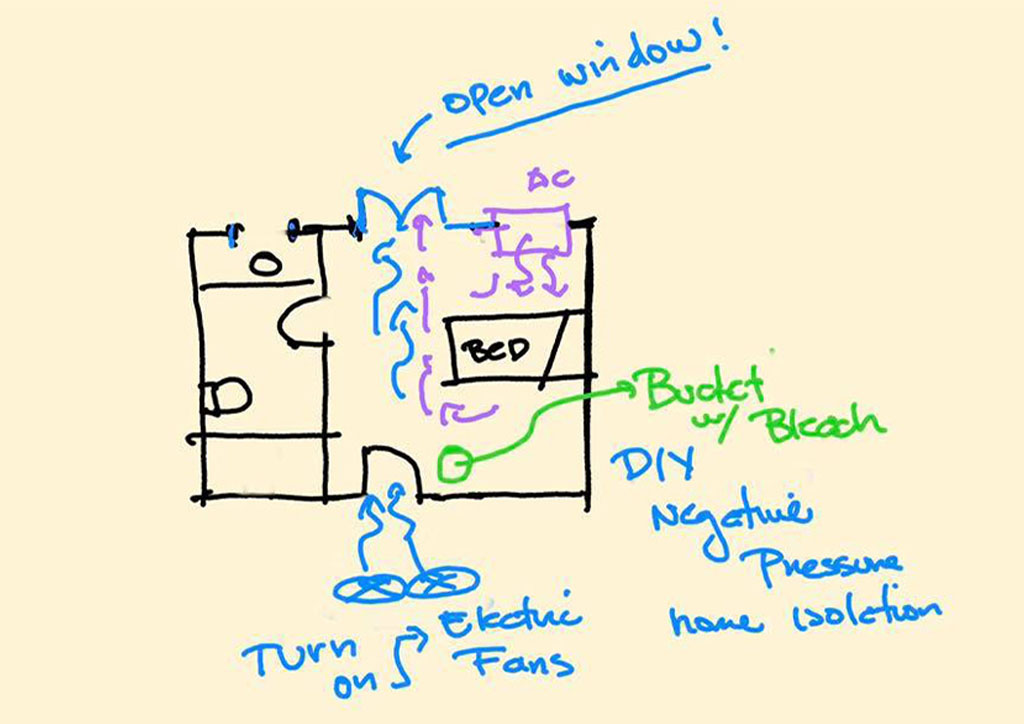 open window!
AC
BED
Bucket
w/ Bleach
DIY
Negative
Pressure
home isolation
Turn
on
Electric
Fans